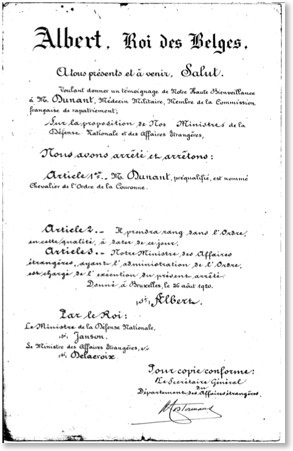 Albert, Roi des Belges.
A tous présents et à venir, Salut.
Voulant donner un témoignage de Notre Haute Bienveillance
à M. Dunant, Médecin Militaire, Membre de la Commission
française de rapatriement;
Sur la proposition de Nos Ministres de la
Défense Nationale et des Affaires Etrangères,
Nous avons arrêté et arrêtons:
Article 1er._ M. Dunant, préqualifié, est nommé
Chevalier de l'Ordre de la Couronne.
Article 2._ Il prendra rang dans l'Ordre,
en cette qualité, à dater de ce jour.
Article 3._ Notre Ministre des Affaires
étrangères, ayant l'administration de l'Ordre,
est chargé de l'exécution du présent arrêté.
Donné à Bruxelles, le 26 août 1920.
s/ Albert.
Par le Roi:
Le Ministre de la Défense Nationale,
s/ Janson.
Le Ministre des Affaires Etrangères,
s/ Delacroix
Pour copie conforme:
Le Secrétaire Général
du
Département des Affaires étrangères.